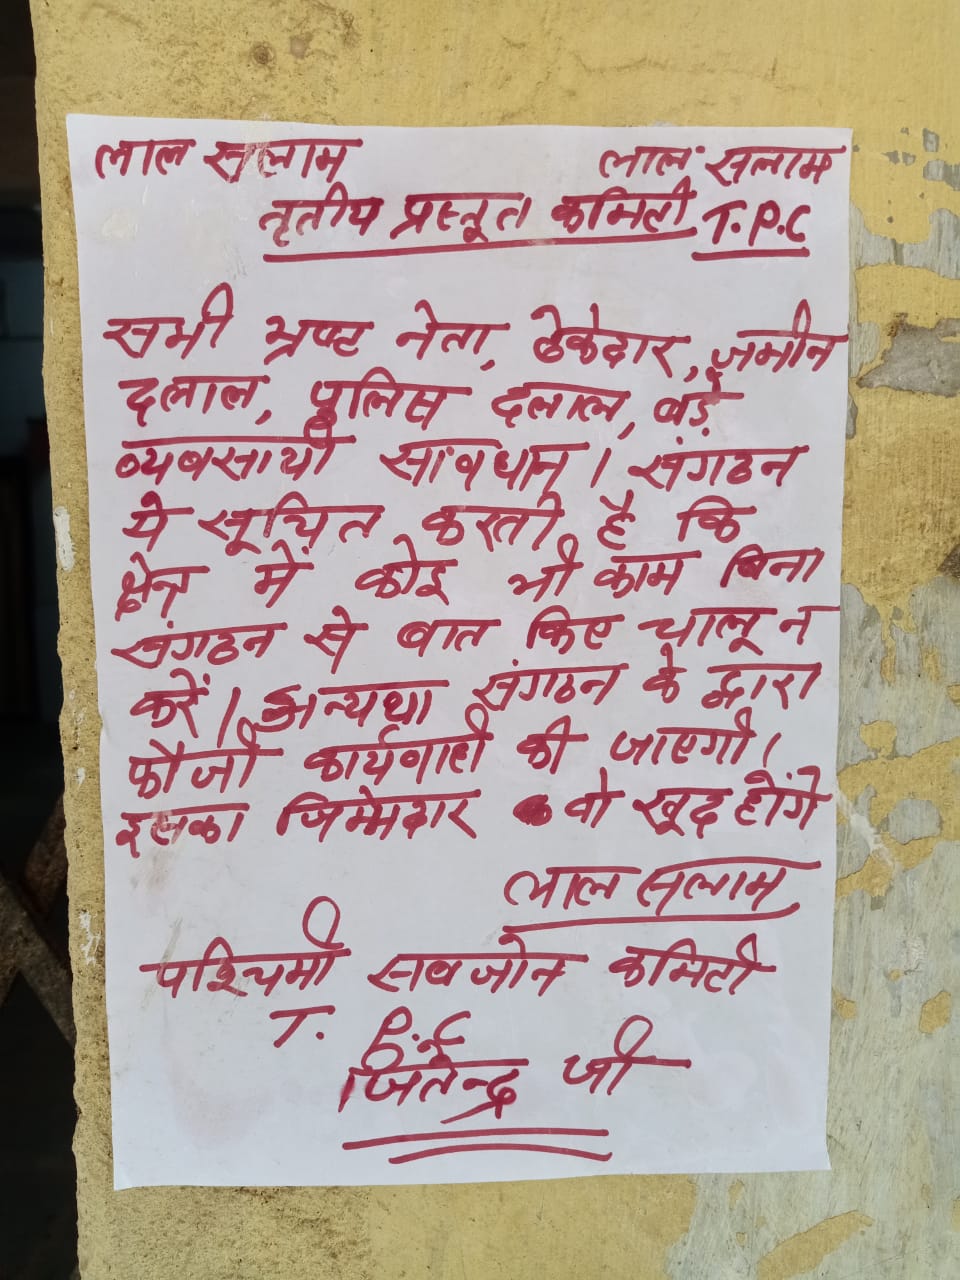 लाल सलाम लाल सलाम
तृतीय प्रस्तूत कमिटी T.P.C
सभी भ्रष्ट नेता, ठेकेदार, जमीन
दलाल, पुलिस दलाल, बड़े
व्यवसायी सावधान। संगठन
ये सूचित करती है कि
क्षेत्र में कोइ भी काम बिना
संगठन से बात किए चालू न
करें। अन्यथा संगठन के द्वारा
फौजी कार्यवाही की जाएगी।
इसका जिम्मेमदार वो खूद होंगे
लाल सलाम
पश्चिमी सवजोन कमिटी
T. P.C
जितेन्द्र जी